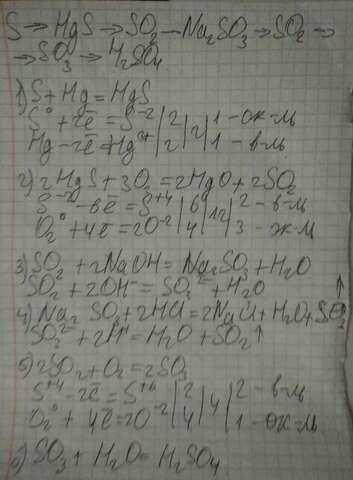 S → HgS → SO₂ → Na₂SO₃ → SO₂ →
→ SO₃ → H₂SO₄
1) S + Hg = HgS
S⁰ + 2ē = S⁻² | 2 | 2 | 1 - ок-ль
Hg - 2ē = Hg²⁺ | 2 | | 1 - в-ль
2) 2HgS + 3O₂ = 2HgO + 2SO₂
S⁻² - 6ē = S⁺⁴ | 6 | 12 | 2 - в-ль
O₂⁰ + 4ē = 2O⁻² | 4 | | 3 - ок-ль
3) SO₂ + 2NaOH = Na₂SO₃ + H₂O
SO₂ + 2OH⁻ = SO₃²⁻ + H₂O
4) Na₂SO₃ + 2HCl = 2NaCl + H₂O + SO₂↑
SO₃²⁻ + 2H⁺ = H₂O + SO₂↑
5) 2SO₂ + O₂ = 2SO₃
S⁺⁴ - 2ē = S⁺⁶ | 2 | 4 | 2 - в-ль
O₂⁰ + 4ē = 2O⁻² | 4 | | 1 - ок-ль
6) SO₃ + H₂O = H₂SO₄